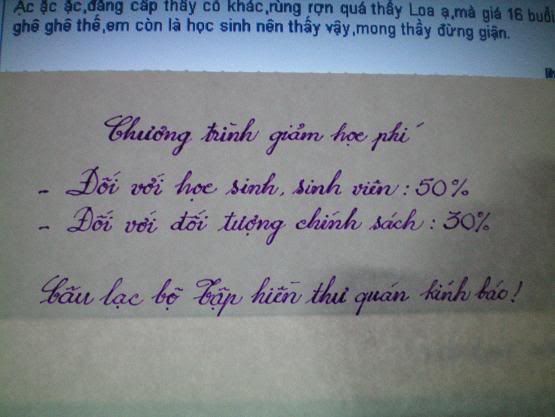 Ặc ặc ặc,đẳng cấp thầy có khác,rùng rợn quá thầy Loa ạ,mà giá 16 buổi
ghê ghê thế,em còn là học sinh nên thấy vậy,mong thầy đừng giận.
Chương trình giảm học phí
- Đối với học sinh, sinh viên : 50%
- Đối với đối tượng chính sách : 30%
Câu lạc bộ Tập hiền thư quán kính báo!